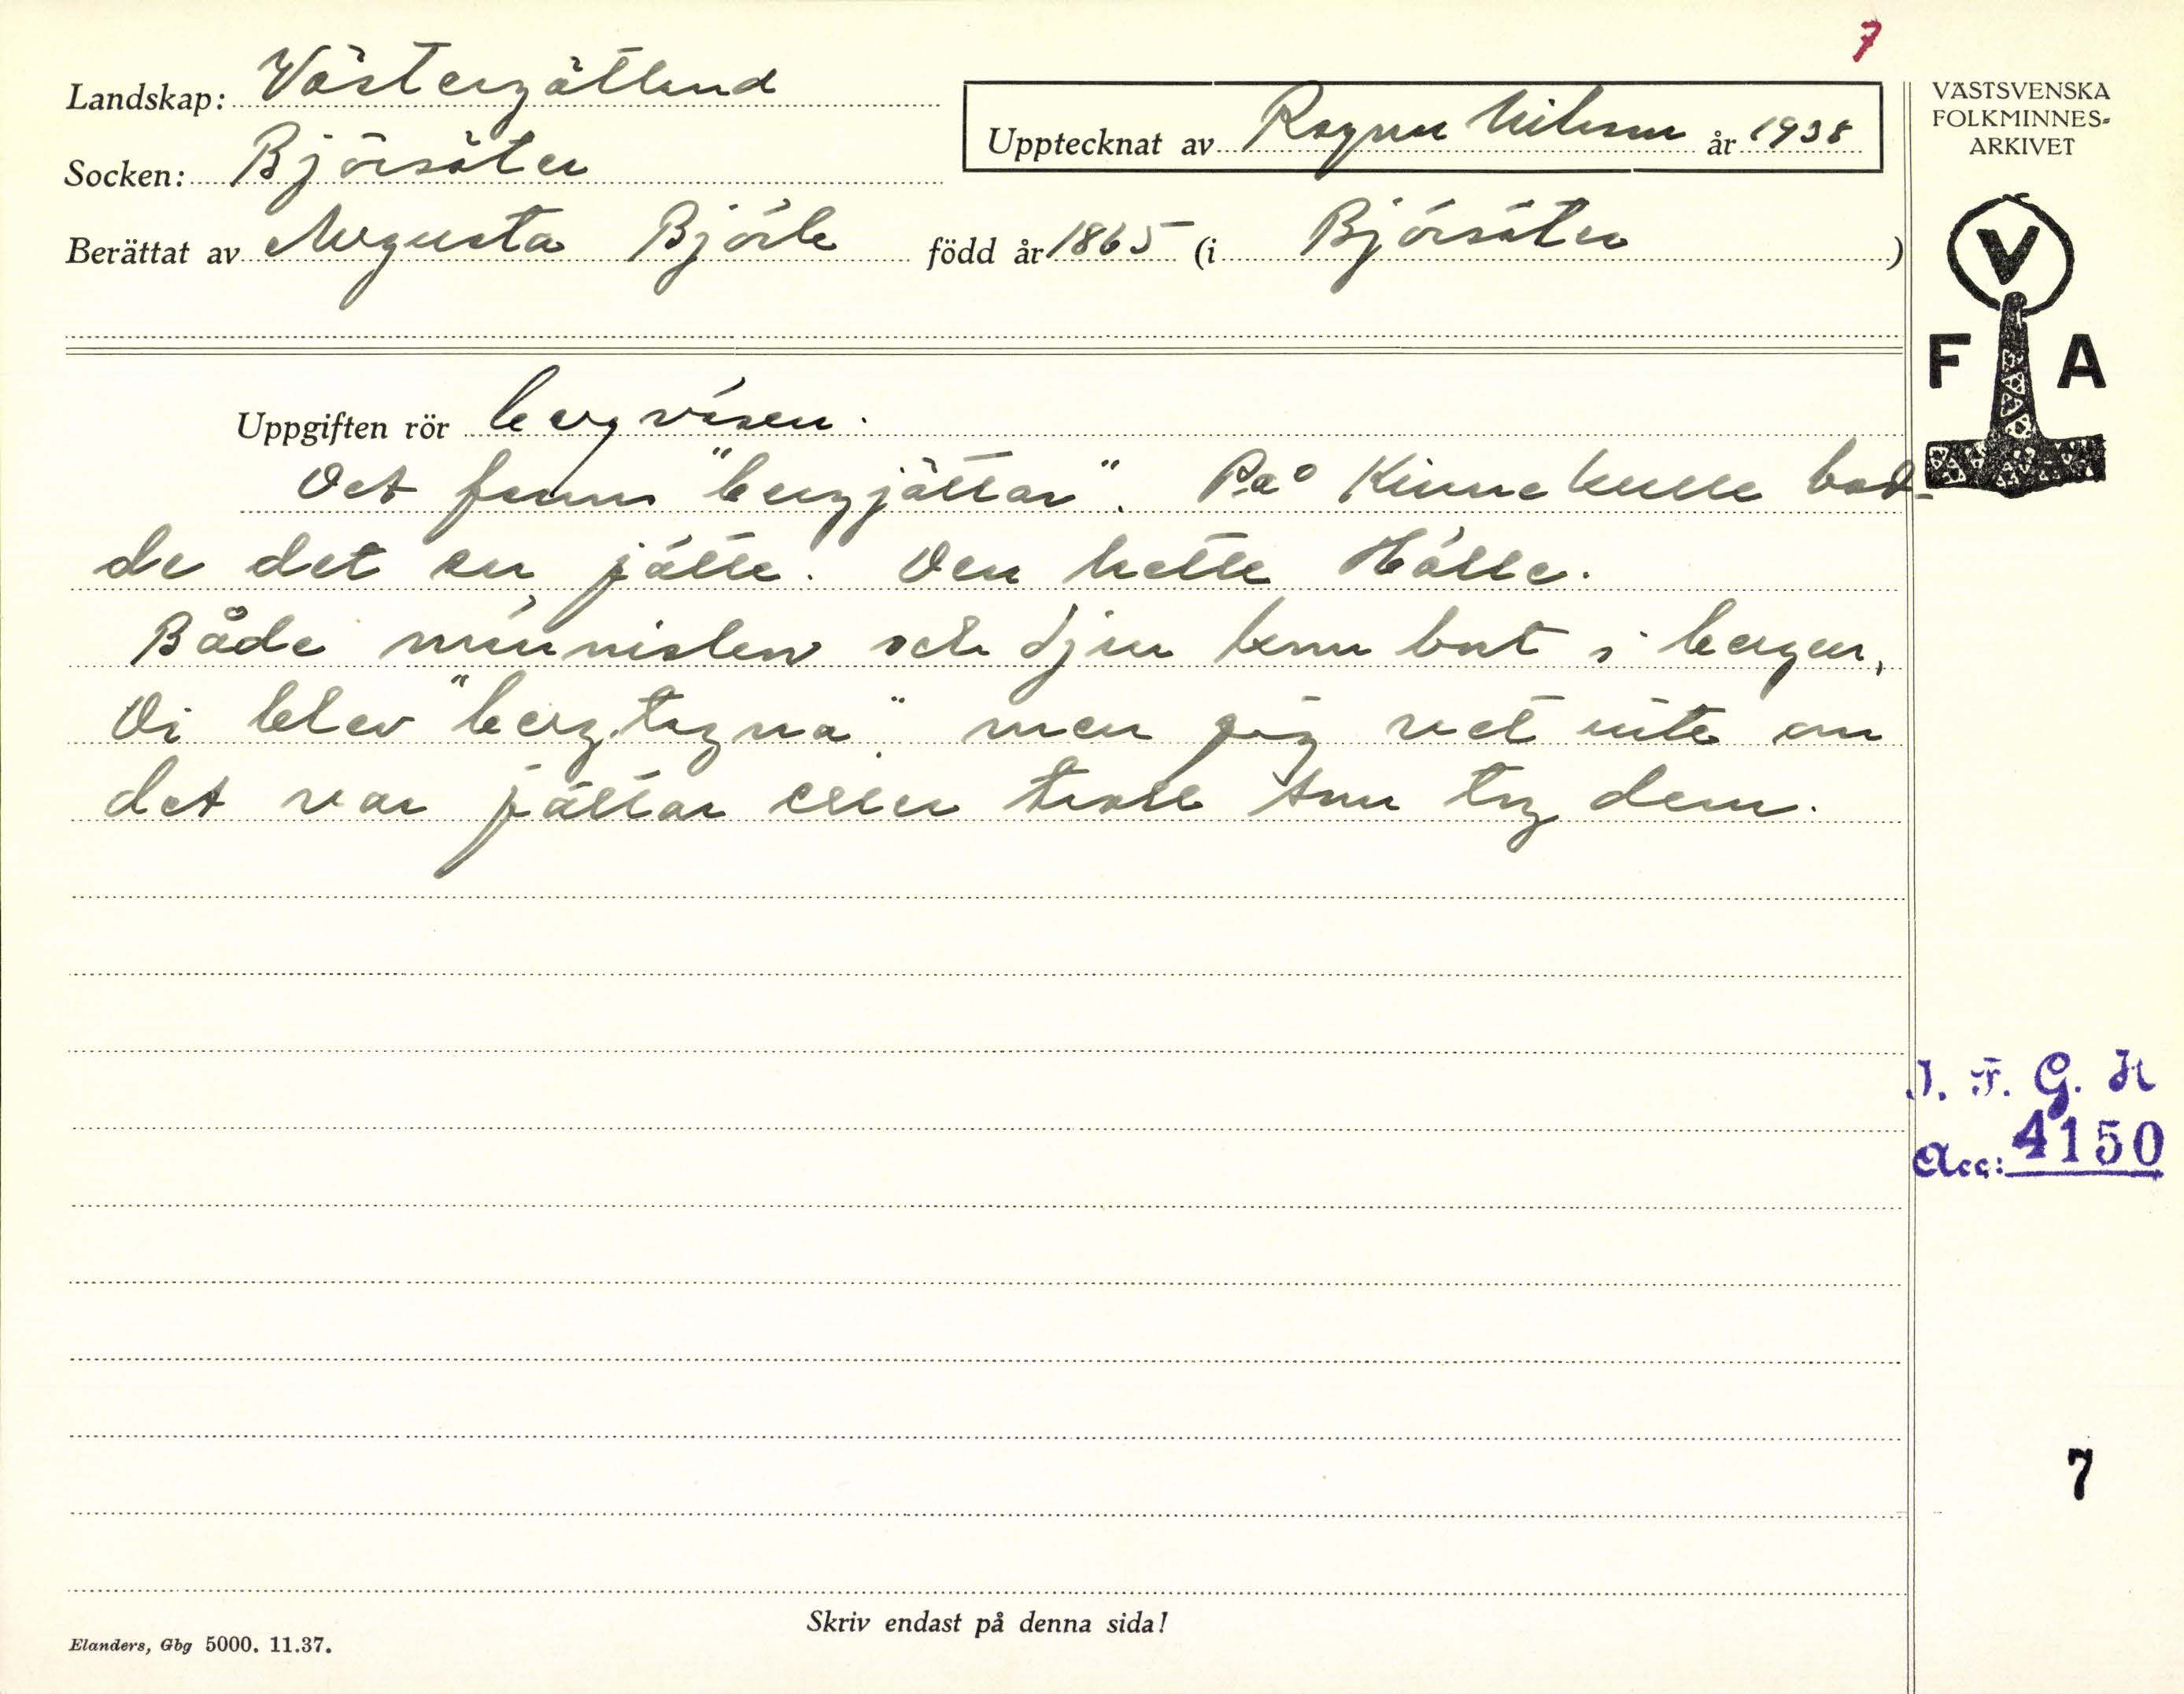 7
Landskap: Västergötland
Socken: Björsäter
Upptecknat av Ragnar Nilsson år 1938
Berättat av Augusta Björk född år 1865 (i Björsäter)
VÄSTSVENSKA
FOLKMINNES-
ARKIVET
V
F A
Uppgiften rör bergväsen.
Det fanns "bergjättar". På Kinnekulle bod-
de det en jätte. Den hette Hålle.
Både människor och djur kom bort i bergen,
Di blev "bergtagna" men jag vet inte om
det var jättar eller troll som tog dem.
I. F. G. H
Acc: 4150
7
Skriv endast på denna sida!
Elanders, Gbg 5000. 11.37.